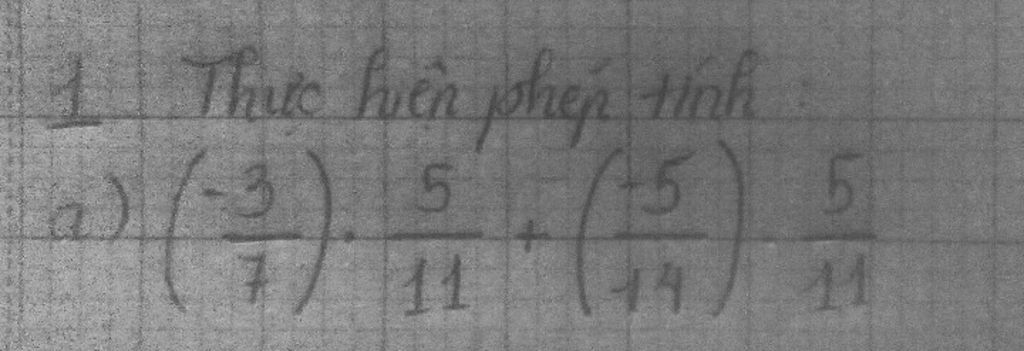 1 Thực hiện phép tính:
a) (-3/7) . 5/11 + (-5/14) . 5/11